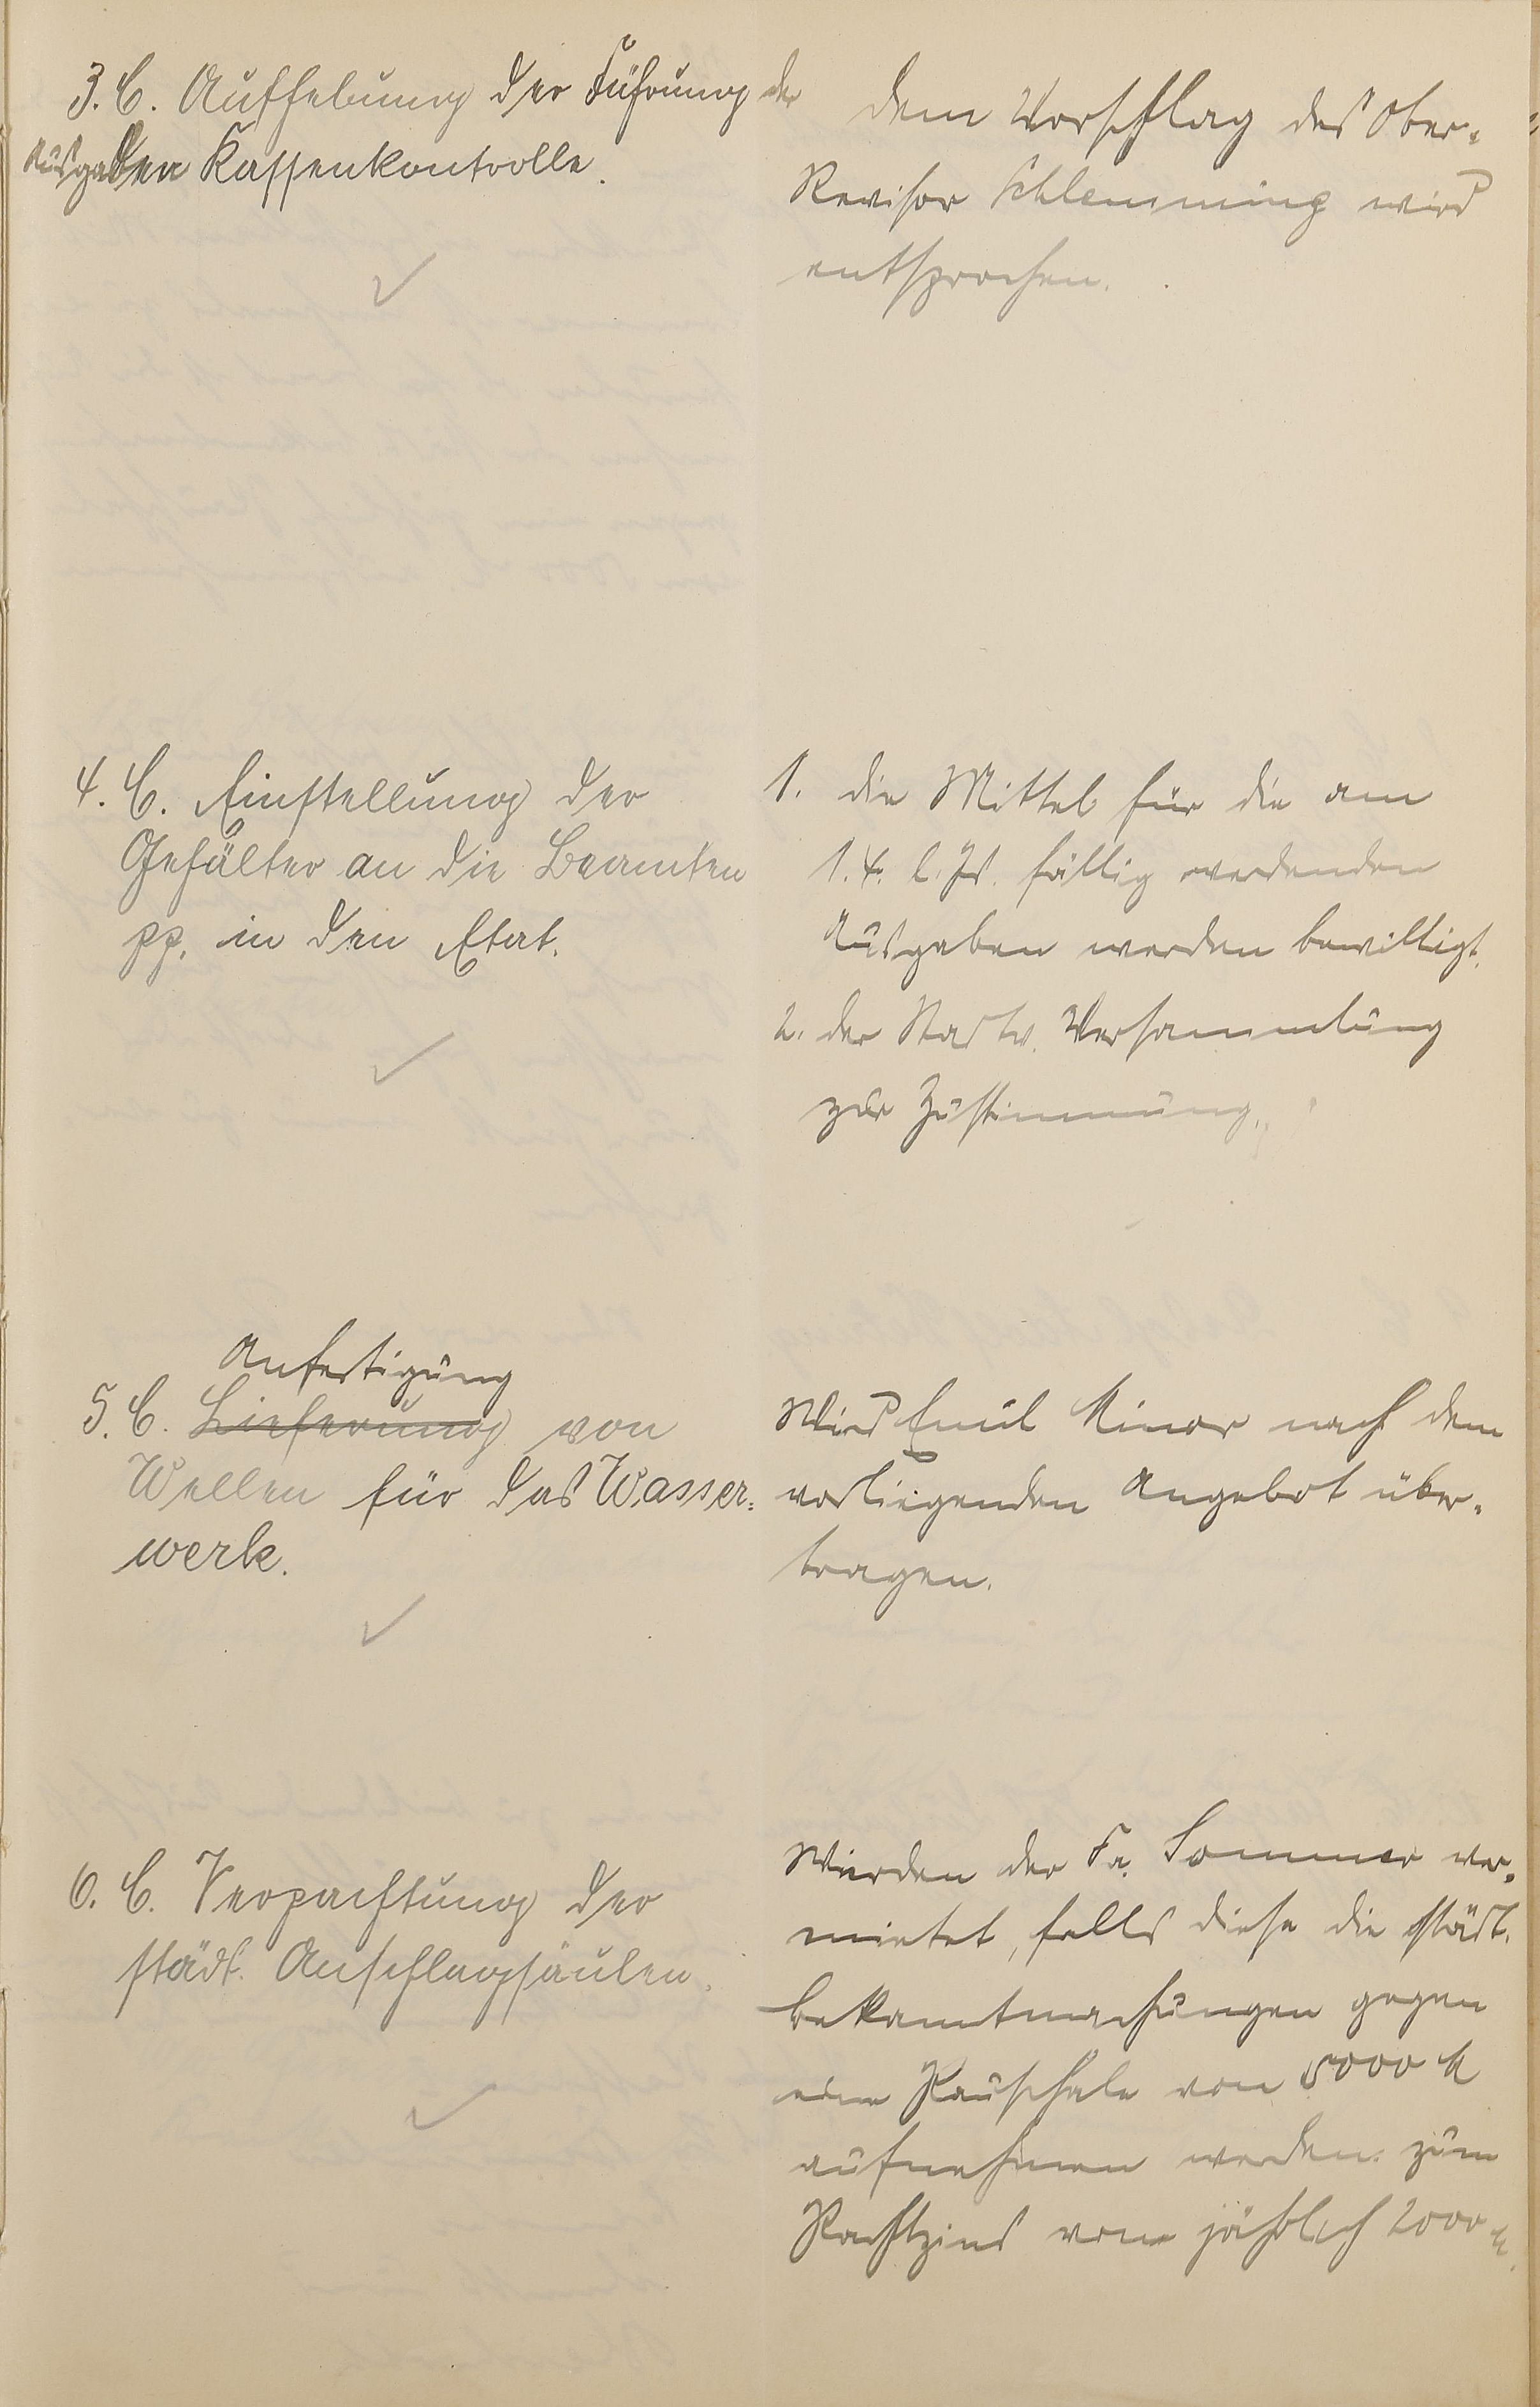 3. C. Aufhebung der Führung der
Ausgaben Kassenkontrolle.
dem Vorschlag des Ober-
Revisor Schlemming wird
entsprochen.
4. C. Einstellung der
Gehälter an die Beamten
pp. in den Etat.
1. die Mittel für die am
1.4. l. Js. fällig werdenden
Ausgaben werden bewilligt.
2. der Stadtv. Versammlung
zur Zustimmung.
Anfertigung
5. C. Lieferung von
Wellen für das Wasser-
werk.
Wird Emil Minor nach dem
vorliegenden Angebot über-
tragen.
6. C. Verpachtung der
städt. Anschlagsäulen.
Werden der Fa. Sommer ver-
mietet, falls diese die städt.
Bekanntmachungen gegen
eine Pauschale von 5000 M
aufnehmen werden. zum
Pachtzins von jährlich 2000 M.